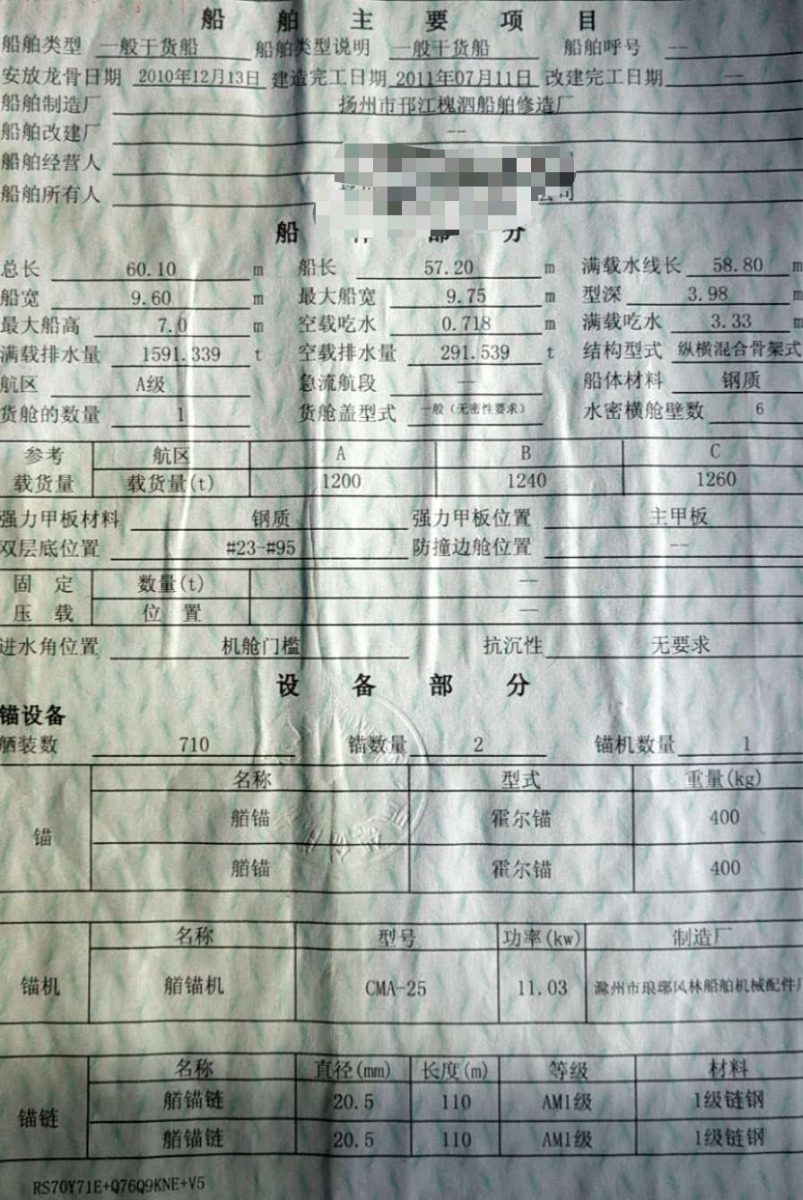 船舶主要项目
船舶类型 一般干货船 船舶类型说明 一般干货船 船舶呼号 --
安放龙骨日期 2010年12月13日 建造完工日期 2011年07月11日 改建完工日期 --
船舶制造厂 扬州市邗江槐泗船舶修造厂
船舶改建厂 --
船舶经营人
船舶所有人 公司
船体部分
总长 60.10 m 船长 57.20 m 满载水线长 58.80 m
船宽 9.60 m 最大船宽 9.75 m 型深 3.98 m
最大船高 7.0 m 空载吃水 0.718 m 满载吃水 3.33 m
满载排水量 1591.339 t 空载排水量 291.539 t 结构型式 纵横混合骨架式
航区 A级 急流航段 -- 船体材料 钢质
货舱的数量 1 货舱盖型式 一般(无密性要求) 水密横舱壁数 6
参考 航区 A B C
载货量 载货量(t) 1200 1240 1260
强力甲板材料 钢质 强力甲板位置 主甲板
双层底位置 #23-#95 防撞边舱位置 --
固定 数量(t) --
压载 位置 --
进水角位置 机舱门槛 抗沉性 无要求
设备部分
锚设备
舾装数 710 锚数量 2 锚机数量 1
名称 型式 重量(kg)
锚 艏锚 霍尔锚 400
艏锚 霍尔锚 400
名称 型号 功率(kw) 制造厂
锚机 艏锚机 CMA-25 11.03 滁州市琅琊风林船舶机械配件厂
名称 直径(mm) 长度(m) 等级 材料
锚链 艏锚链 20.5 110 AM1级 1级链钢
艏锚链 20.5 110 AM1级 1级链钢
RS70Y71E+Q76Q9KNE+V5